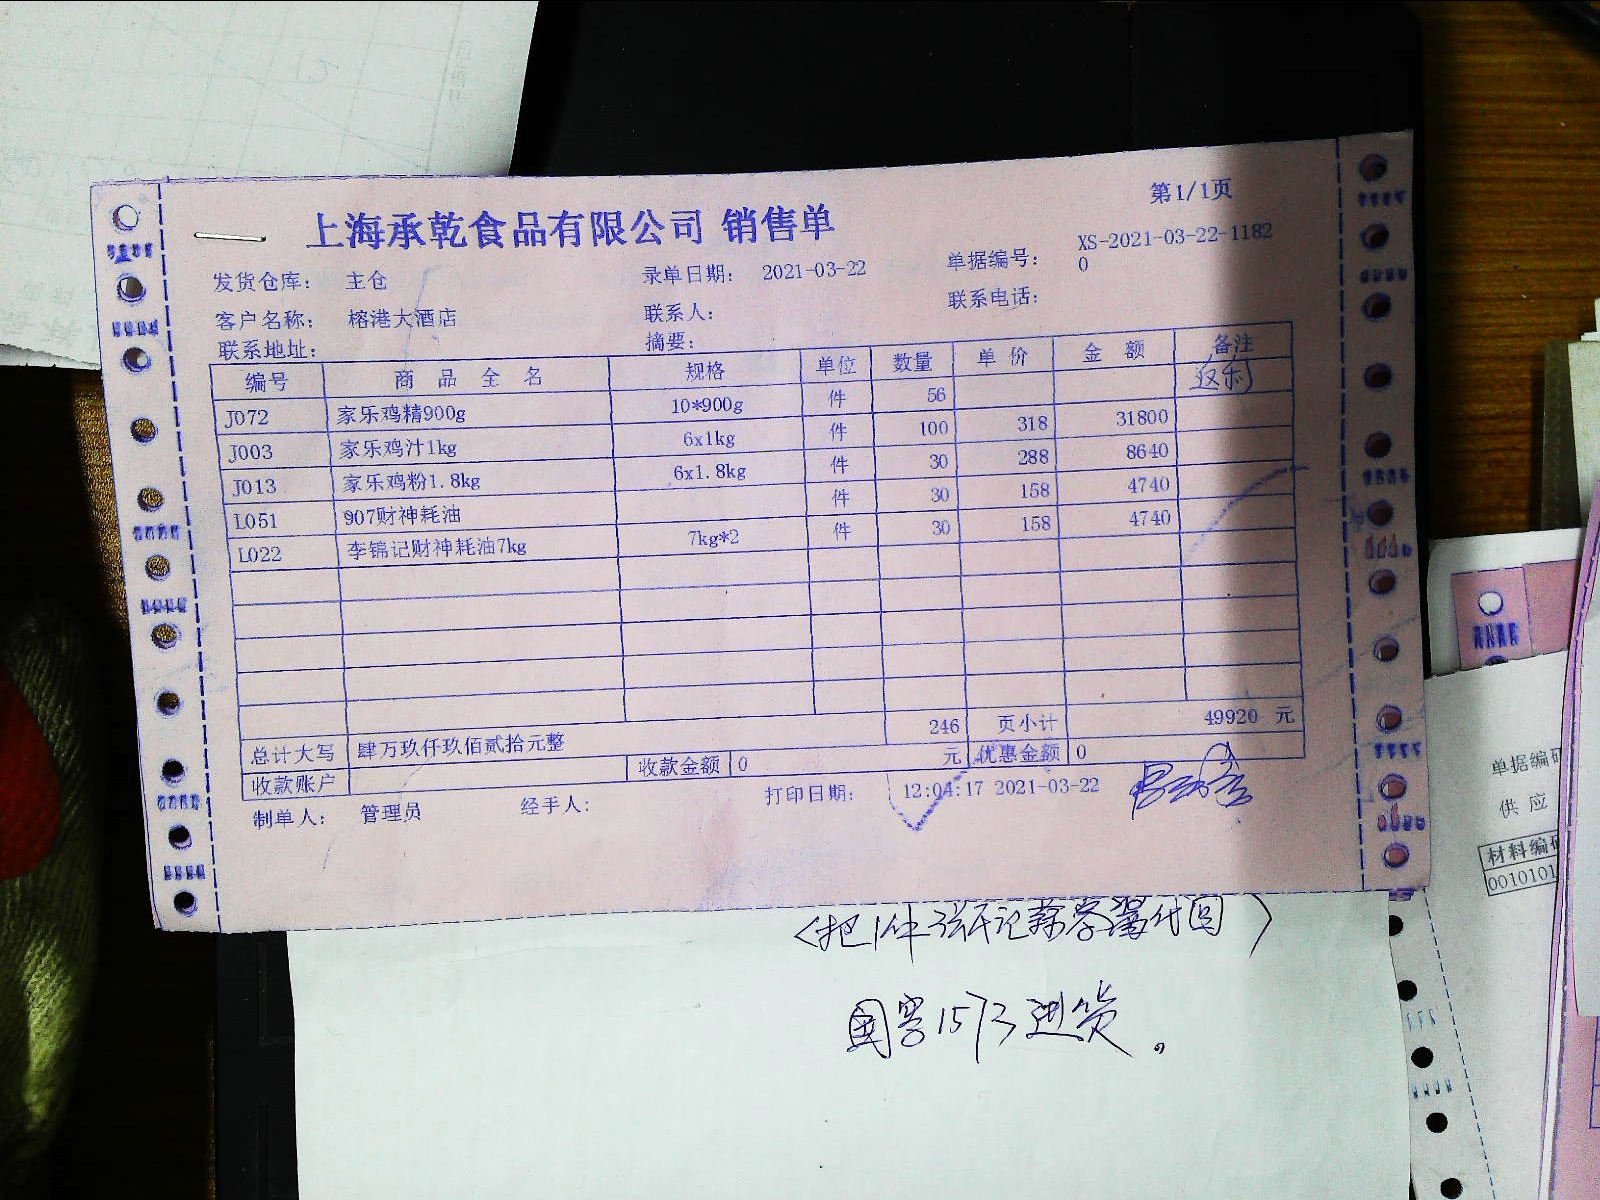 第1/1页
上海承乾食品有限公司 销售单
发货仓库： 主仓 录单日期： 2021-03-22 单据编号： XS-2021-03-22-1182
0
客户名称： 榕港大酒店 联系人： 联系电话：
联系地址： 摘要：
编号 商 品 全 名 规格 单位 数量 单 价 金 额 备注
J072 家乐鸡精900g 10*900g 件 56
J003 家乐鸡汁1kg 6x1kg 件 100 318 31800
J013 家乐鸡粉1.8kg 6x1.8kg 件 30 288 8640
L051 907财神耗油 件 30 158 4740
L022 李锦记财神耗油7kg 7kg*2 件 30 158 4740
246 页小计 49920 元
总计大写 肆万玖仟玖佰贰拾元整
收款账户 收款金额 0 元 优惠金额 0
制单人： 管理员 经手人： 打印日期： 12:04:17 2021-03-22
国窖1573进货。
单据编
供 应
材料编
0010101